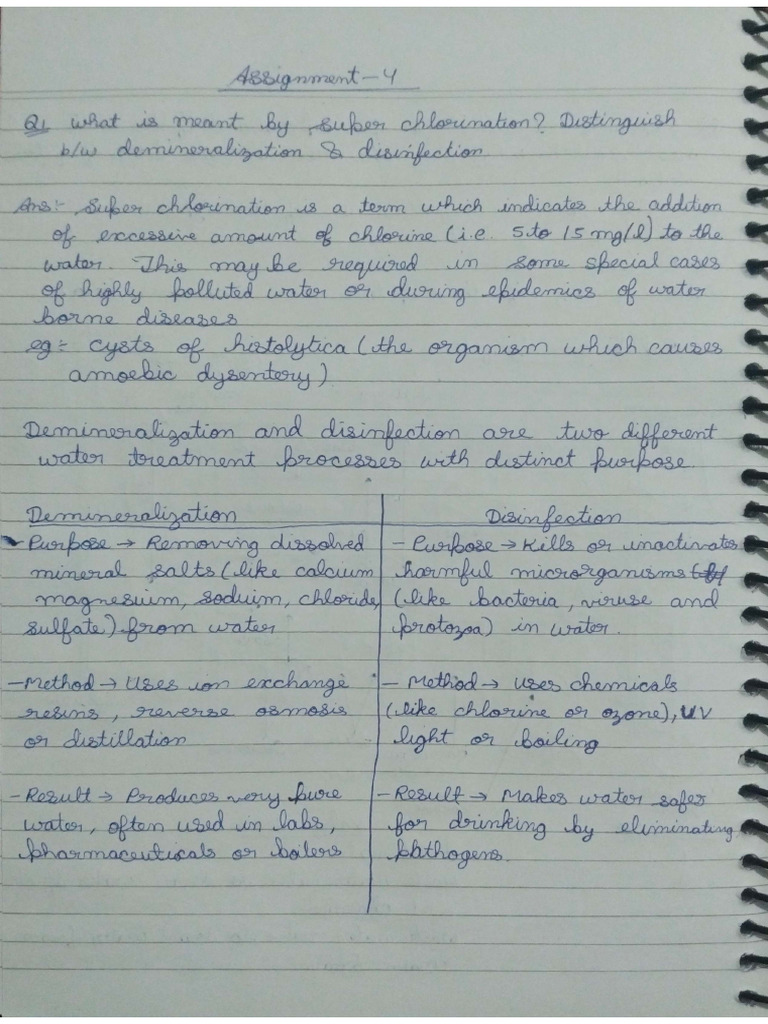 Assignment-4
Q1 what is meant by super chlorination? Distinguish
b/w demineralization & disinfection
Ans:- Super chlorination is a term which indicates the addition
of excessive amount of chlorine (i.e. 5 to 15 mg/l) to the
water. This may be required in some special cases
of highly polluted water or during epidemics of water
borne diseases
eg:- cysts of histolytica (the organism which causes
amoebic dysentery)
Demineralization and disinfection are two different
water treatment processes with distinct purpose.
Demineralization
- Purpose → Removing dissolved
mineral salts (like calcium
magnesium, soduim, chloride,
sulfate) from water
- Method → Uses ion exchange
resins, reverse osmosis
or distillation
- Result → Produces very pure
water, often used in labs,
pharmaceuticals or boilers
Disinfection
- Purpose → Kills or inactivates
harmful microorganisms
(like bacteria, viruse and
protozoa) in water.
- Method → Uses chemicals
(like chlorine or ozone), UV
light or boiling
- Result → Makes water safer
for drinking by eliminating
pathogens.